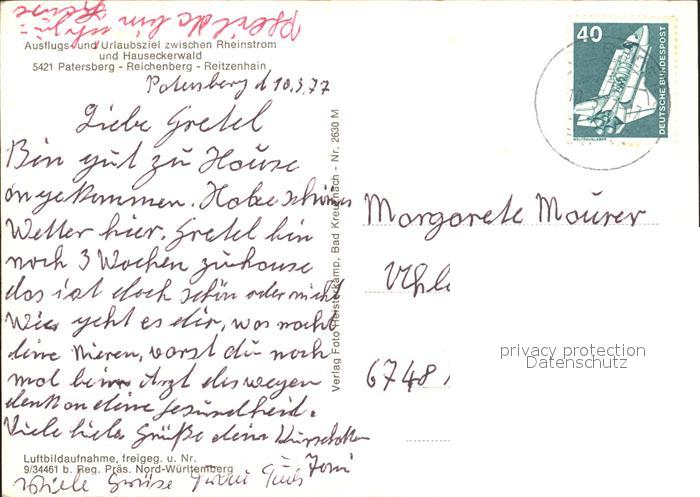 Ausflugs- und Urlaubsziel zwischen Rheinstrom
und Hauseckerwald
5421 Patersberg - Reichenberg - Reitzenhain
Patersberg d 10.3.77
Liebe Gretel
Bin gut zu House
angekommen. Habe schönes
Wetter hier. Gretel bin
noch 3 Wochen zuhause
das ist doch schön oder nicht
Wie geht es dir, was macht
deine Nieren, warst du noch
mal beim Arzt deswegen
denk an deine Gesundheid.
Viele liebe Grüße deine
Toni
Viele Grüse
Luftbildaufnahme, freigeg. u. Nr.
9/34461 b. Reg. Präs. Nord-Württemberg
Verlag Foto Pfeisterkamp, Bad Kreuznach - Nr. 2630 M
40
DEUTSCHE BUNDESPOST
WELTRAUMLABOR
Margarete Maurer
6748
privacy protection
Datenschutz